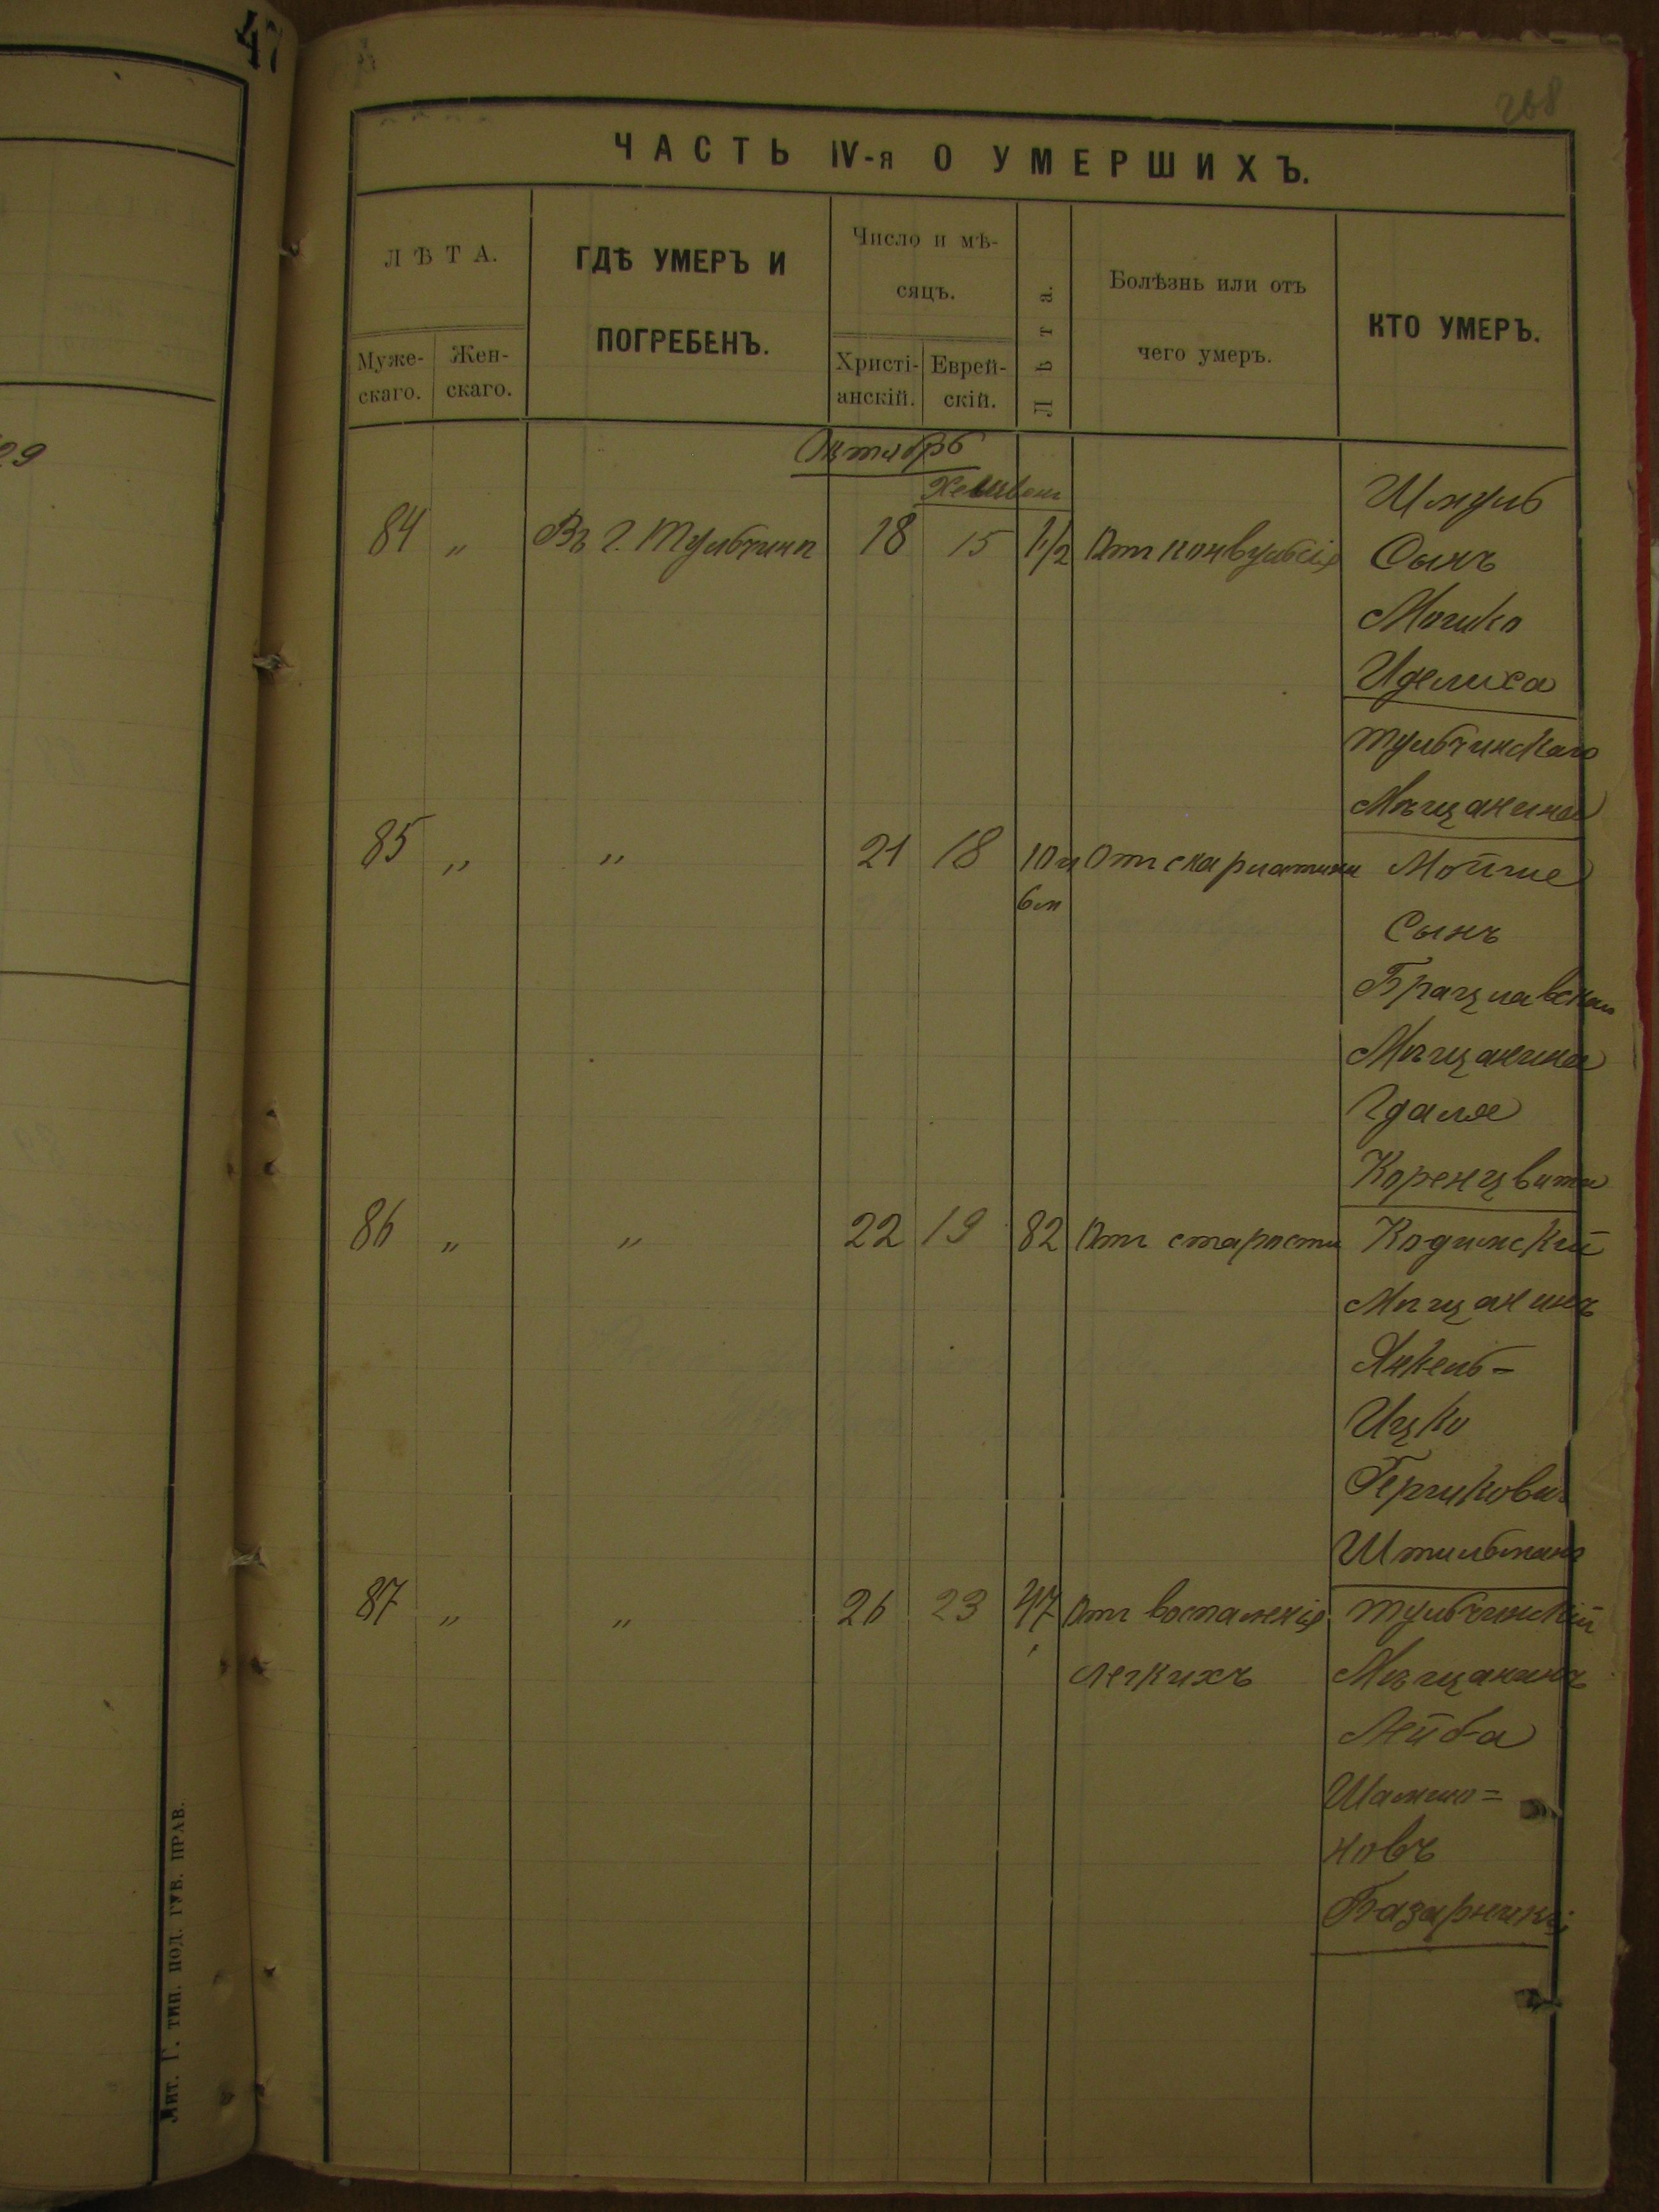 47
268
29
ЧАСТЬ IV-я О УМЕРШИХЪ.
ЛѢТА.
Муже-
скаго.
Жен-
скаго.
ГДѢ УМЕРЪ И
ПОГРЕБЕНЪ.
Число и мѣ-
сяцъ.
Христі-
анскій.
Еврей-
скій.
Лѣта.
Болѣзнь или отъ
чего умеръ.
КТО УМЕРЪ.
Октябрь
Хешвон
84 " Въ г. Тульчинѣ 18 15 1 1/2 От конвульсія
Шмуль
Сынъ
Мошко
Иделиса
Тульчинскаго
Мѣщанина
85 " " 21 18 10 и От скарлатини Мойше
6 м
Сынъ
Брацлавскаго
Мѣщанина
Гдаля
Коренцвита
86 " " 22 19 82 От старости Кодимскій
Мѣщанинъ
Янкель-
Ицко
Гершкович
Штильман
87 " " 26 23 47 От воспаленія Тульчинскій
легкихъ Мѣщанинъ
Лейба
новъ
Базарницкі
Лит. Г. тип. под. губ. прав.